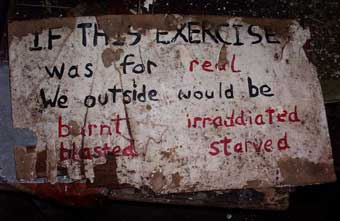 IF THIS EXERCISE
was for real
We outside would be
burnt irraddiated
blasted starved